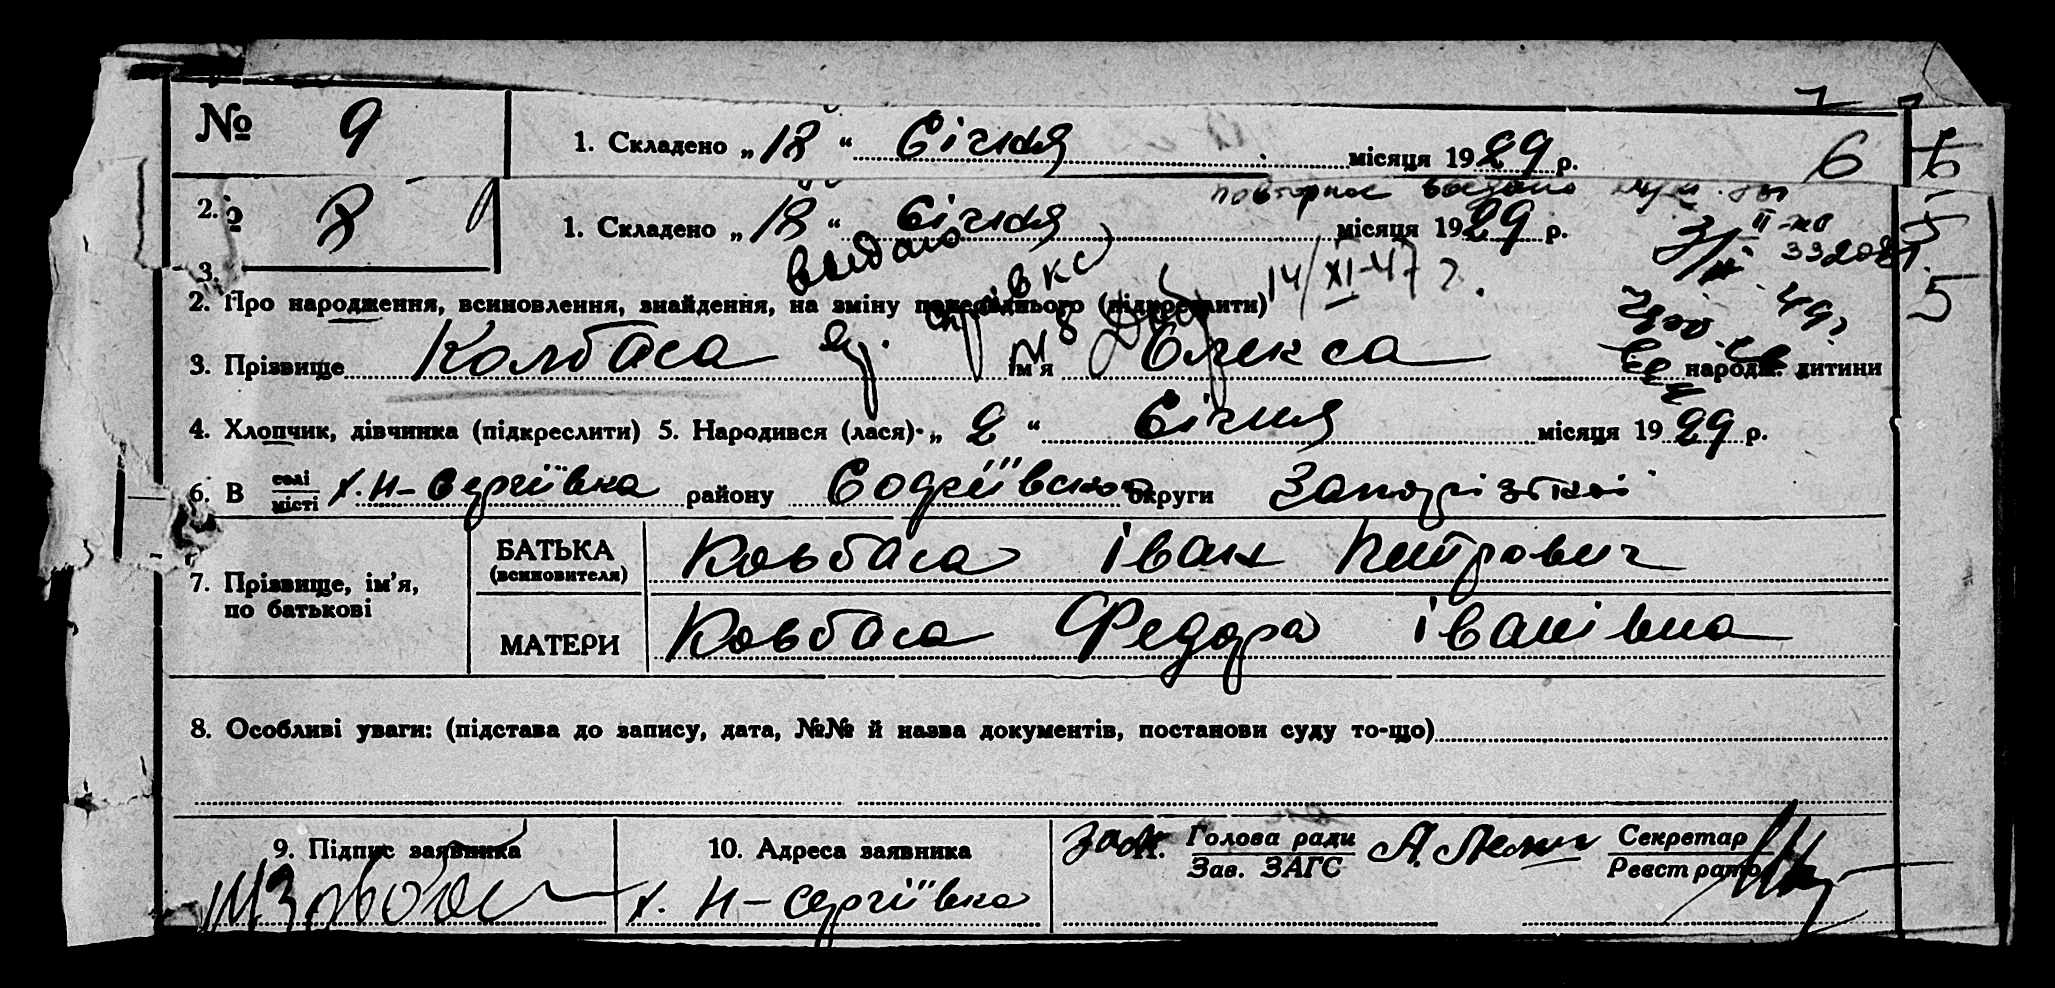 № 9
1. Складено „18“ Січня місяця 1929 р. 6
2. 8
1. Складено „18“ Січня місяця 1929 р.
повторное
5
3.
14/XI-47 г.
2. Про народження, всиновлення, знайдення, на зміну попереднього (підкреслити)
3. Прізвище Колбаса ім'я Олекса народж. дитини
4. Хлопчик, дівчинка (підкреслити) 5. Народився (лася) „2“ Січня місяця 1929 р.
6. В селі/місті х. Н-Сергіївка району Софіївського округи Запорізької
7. Прізвище, ім'я, по батькові
БАТЬКА (всиновителя) Ковбаса Іван Петрович
МАТЕРИ Ковбаса Федора Іванівна
8. Особливі уваги: (підстава до запису, дата, №№ й назва документів, постанови суду то-що)
9. Підпис заявника
10. Адреса заявника
х. Н-Сергіївка
11. Голова ради
Зав. ЗАГС
Секретар
Реєстратор